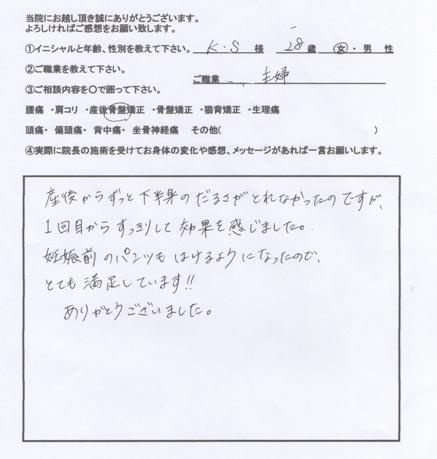 当院にお越し頂き誠にありがとうございます。
よろしければご感想をお願い致します。
①イニシャルと年齢、性別を教えて下さい。 K.S 様 28歳 女・男 性
②ご職業を教えて下さい。 ご職業 主婦
③ご相談内容を○で囲って下さい。
腰痛 ・肩コリ ・産後骨盤矯正 ・骨盤矯正 ・猫背矯正 ・生理痛
頭痛・ 偏頭痛・ 背中痛・ 坐骨神経痛 その他( )
④実際に院長の施術を受けてお身体の変化や感想、メッセージがあれば一言お願いします。
産後からずっと下半身のだるさがとれなかったのですが、
1回目からすっきりして効果を感じました。
妊娠前のパンツもはけるようになったので、
とても満足しています!!
ありがとうございました。